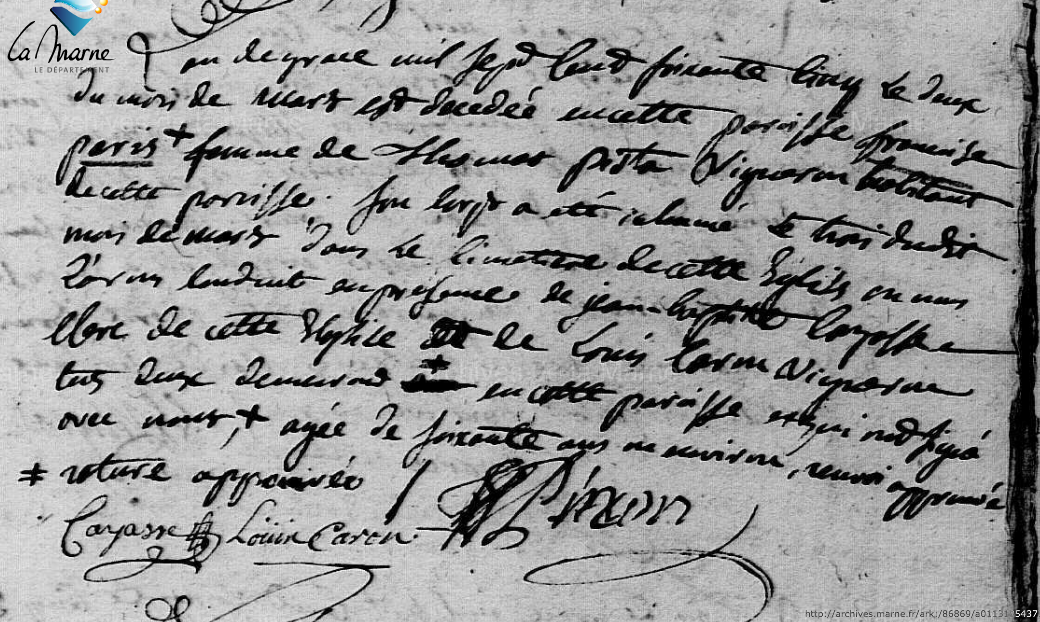 La Marne
LE DÉPARTEMENT
L'an de grace mil sept cent soixante cinq le deux
du mois de mars est decedée en cette paroisse francoise
paris + femme de thomas vigneron habitant
de cette paroisse. son corps a été inhumé le trois dudit
mois de mars dans le cimetiere de cette Eglise ou nous
l'avons conduit en presence de jean-baptiste Cayasse
clerc de cette Eglise et de Louis Caron vigneron
tous deux demeurant en cette paroisse et qui ont signé
avec nous, + agée de soixante ans ou environ, renvoi approuvé
‡ roture approuvée
Cayasse Louis Caron Pinon
http://archives.marne.fr/ark:/86869/a0113 5437